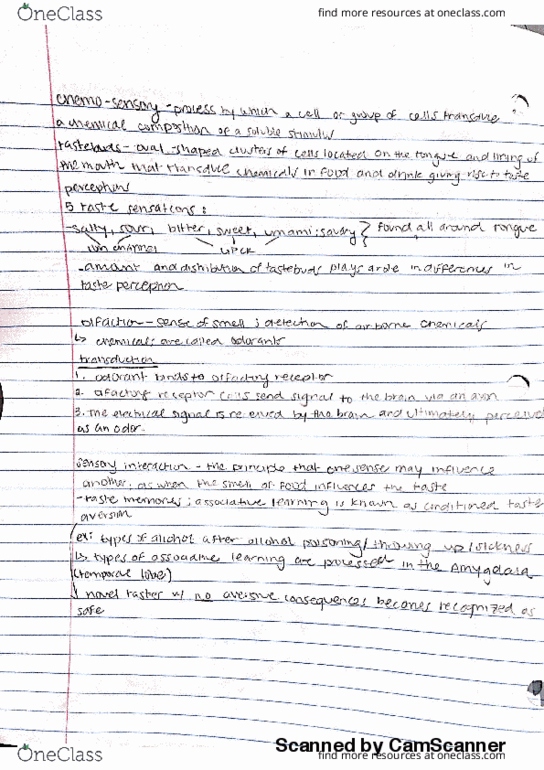 OneClass
find more resources at oneclass.com
chemo-sensory - process by which a cell or group of cells transduce
a chemical composition of a soluble stimulus
tastebuds - oval-shaped clusters of cells located on the tongue and lining of
the mouth that transduce chemicals in food and drink giving rise to taste
perceptions
5 taste sensations:
-salty, sour, bitter, sweet, umami: savory } found all around tongue
ion channel GPCR
-amount and distribution of tastebuds plays a role in differences in
taste perception
olfaction - sense of smell; detection of airborne chemicals
↳ chemicals are called odorants
transduction
1. odorant binds to olfactory receptor
2. olfactory receptor cells send signal to the brain via an axon
3. The electrical signal is received by the brain and ultimately perceived
as an odor.
sensory interaction - the principle that one sense may influence
another; as when the smell of food influences the taste
-taste memories; associative learning is known as conditioned taste
aversion
ex: types of alcohol after alcohol poisoning/throwing up/sickness
↳ types of associative learning are processed in the Amygdala
(temporal lobe)
novel taster w/ no aversive consequences becomes recognized as
safe
Scanned by CamScanner
OneClass
find more resources at oneclass.com